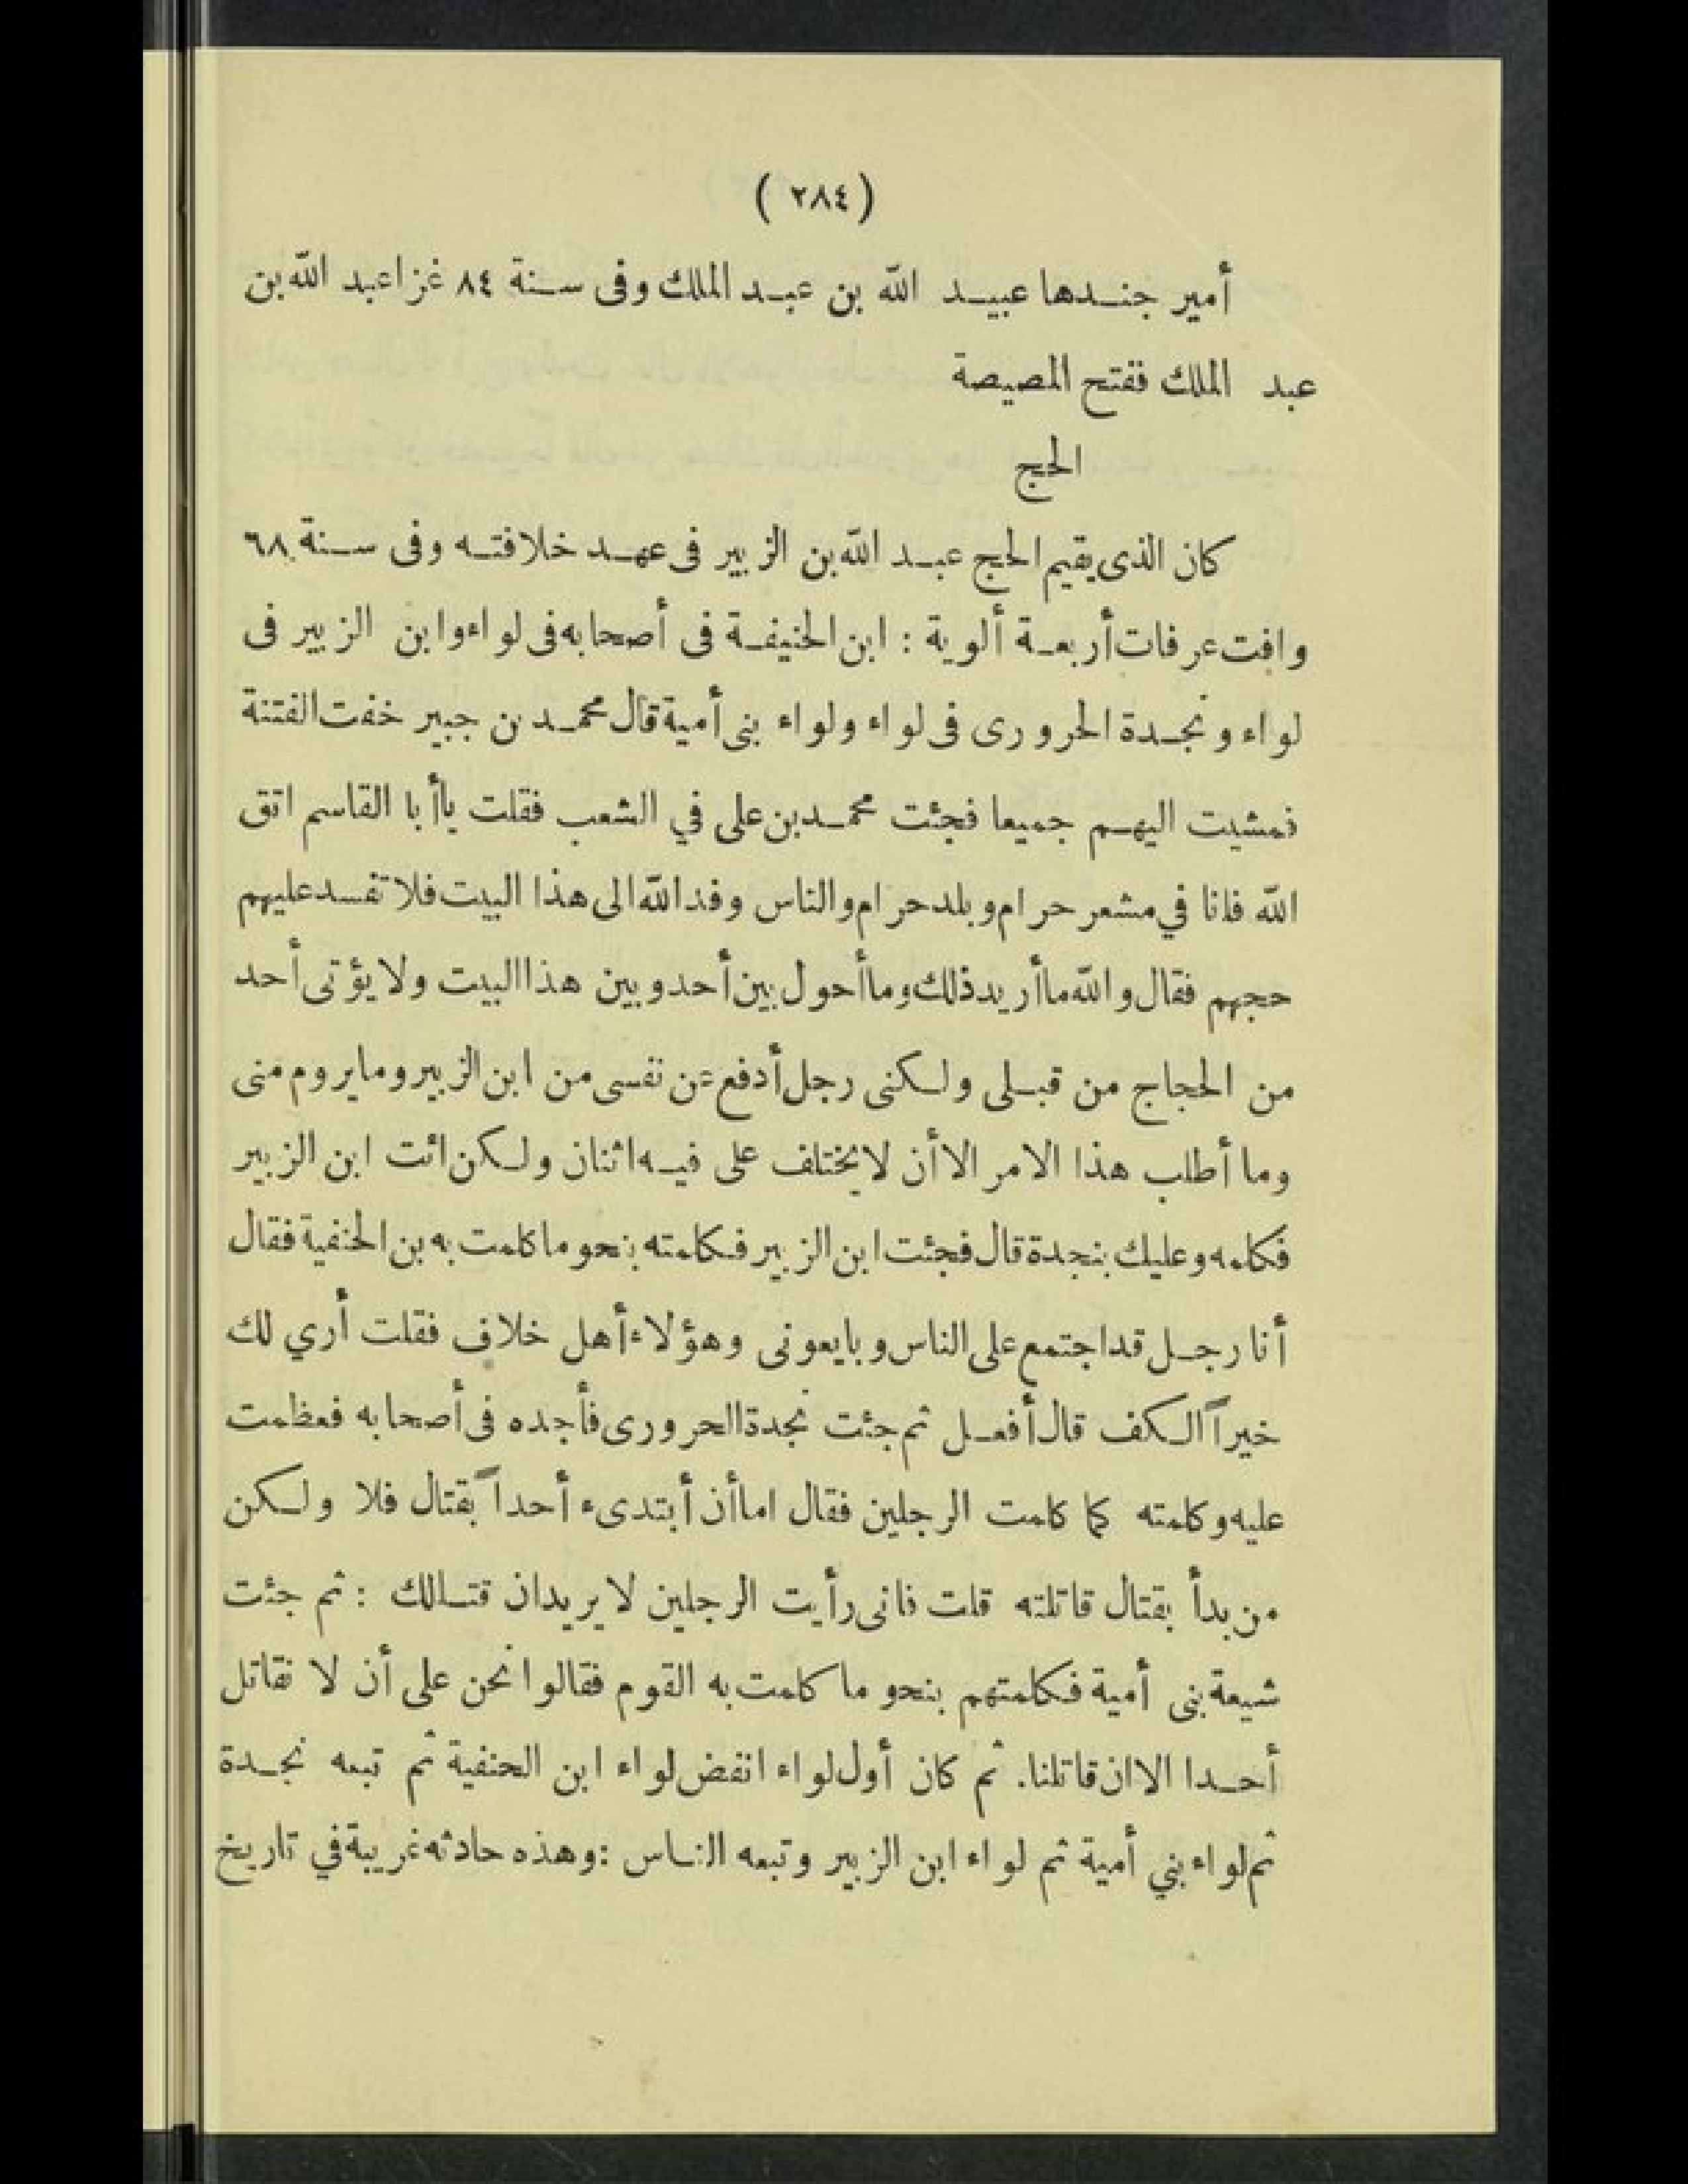 ( ٢٨٤ )
أمير جندها عبيد الله بن عبد الملك وفى سنة ٨٤ غزا عبد الله بن
عبد الملك ففتح المصيصة
الحج
كان الذى يقيم الحج عبد الله بن الزبير فى عهد خلافته وفى سنة ٦٨
وافت عرفات أربعة ألوية : ابن الحنيفة فى أصحابه فى لواء وابن الزبير فى
لواء ونجدة الحرورى فى لواء ولواء بنى أمية قال محمد بن جبير خفت الفتنة
فمشيت اليهم جميعا فجئت محمد بن على في الشعب فقلت ياأبا القاسم اتق
الله فانا في مشعر حرام وبلد حرام والناس وفد الله الى هذا البيت فلا تفسد عليهم
حجهم فقال والله ماأريد ذلك وماأحول بين أحد وبين هذا البيت ولا يؤتى أحد
من الحجاج من قبلى ولكنى رجل أدفع عن نفسى من ابن الزبير وما يروم منى
وما أطلب هذا الامر الا أن لا يختلف على فيه اثنان ولكن ائت ابن الزبير
فكلمه وعليك بنجدة قال فجئت ابن الزبير فكلمته بنحو ما كلمت به بن الحنفية فقال
أنا رجل قد اجتمع على الناس وبايعونى وهؤلاء أهل خلاف فقلت أري لك
خيراً الكف قال أفعل ثم جئت نجدة الحرورى فأجده فى أصحابه فعظمت
عليه وكلمته كما كلمت الرجلين فقال اما أن أبتدىء أحداً بقتال فلا ولكن
من بدأ بقتال قاتلته قلت فانى رأيت الرجلين لا يريدان قتالك : ثم جئت
شيعة بنى أمية فكلمتهم بنحو ما كلمت به القوم فقالوا نحن على أن لا نقاتل
أحدا الا ان قاتلنا. ثم كان أول لواء انفض لواء ابن الحنفية ثم تبعه نجدة
ثم لواء بني أمية ثم لواء ابن الزبير وتبعه الناس : وهذه حادثه غريبة في تاريخ